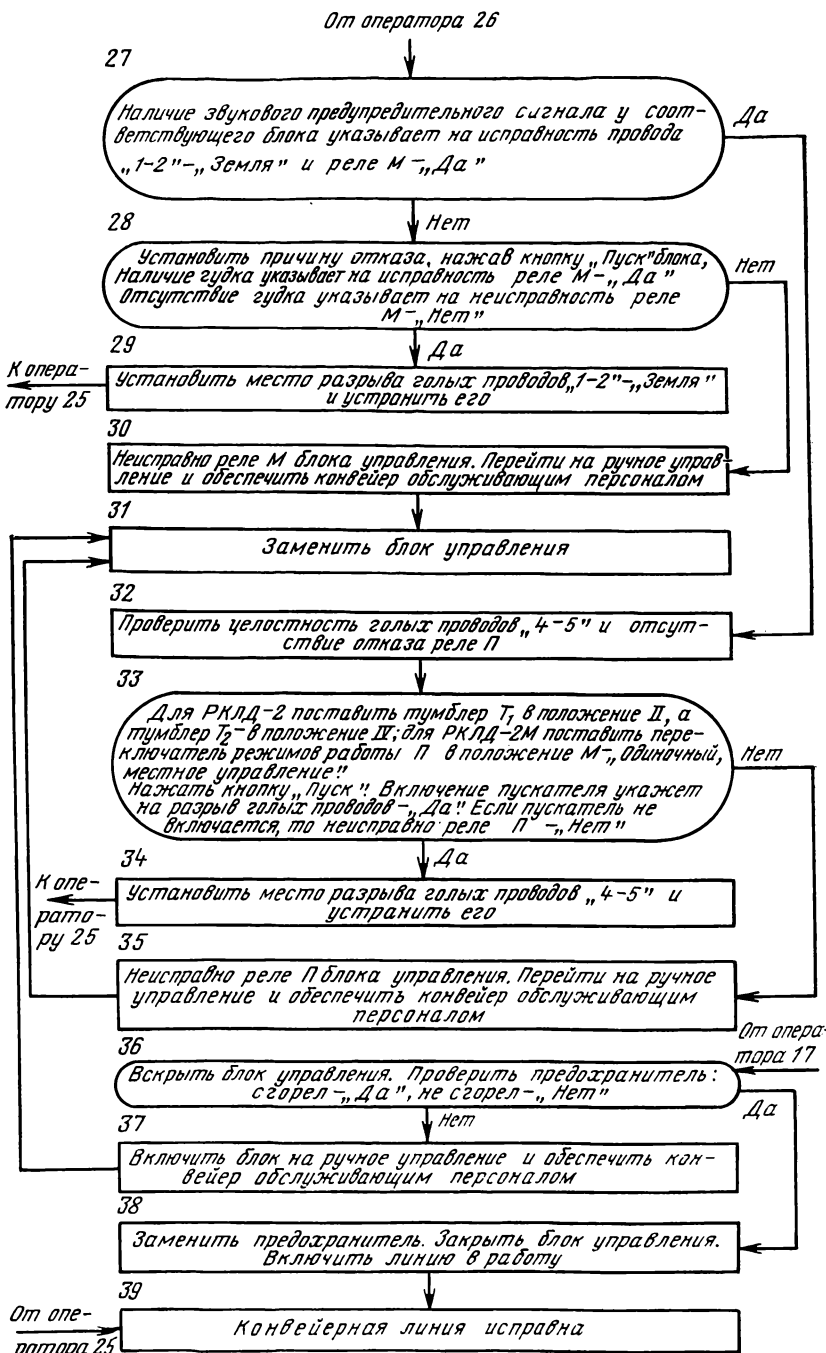 От оператора 26
27
Наличие звукового предупредительного сигнала у соот-
ветствующего блока указывает на исправность провода
„1-2”-„Земля” и реле М-„Да”
Да
Нет
28
Установить причину отказа, нажав кнопку „Пуск” блока,
Наличие гудка указывает на исправность реле М-„Да”
Отсутствие гудка указывает на неисправность реле
М-„Нет”
Нет
Да
29
К опера-
тору 25
Установить место разрыва голых проводов „1-2”-„Земля”
и устранить его
30
Неисправно реле М блока управления. Перейти на ручное управ-
ление и обеспечить конвейер обслуживающим персоналом
31
Заменить блок управления
32
Проверить целостность голых проводов „4-5” и отсут-
ствие отказа реле П
33
Для РКЛД-2 поставить тумблер Т₁ в положение II, а
тумблер Т₂- в положение IV; для РКЛД-2М поставить пере-
ключатель режимов работы П в положение М-„Одиночный,
местное управление".
Нажать кнопку „Пуск”. Включение пускателя укажет
на разрыв голых проводов-„Да”. Если пускатель не
включается, то неисправно реле П -„Нет”
Нет
Да
34
К опе-
рато-
ру 25
Установить место разрыва голых проводов „4-5” и
устранить его
35
Неисправно реле П блока управления. Перейти на ручное
управление и обеспечить конвейер обслуживающим
персоналом
От опера-
тора 17
36
Вскрыть блок управления. Проверить предохранитель:
сгорел-„Да”, не сгорел-„Нет”
Да
Нет
37
Включить блок на ручное управление и обеспечить кон-
вейер обслуживающим персоналом
38
Заменить предохранитель. Закрыть блок управления.
Включить линию в работу
39
От опе-
ратора 25
Конвейерная линия исправна